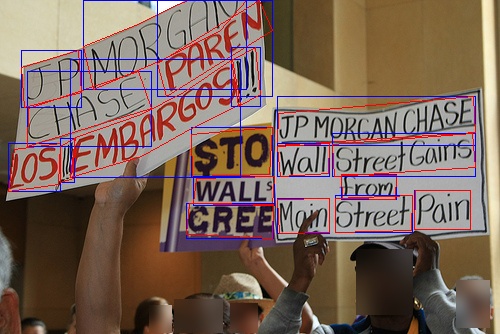 JP MORGAN
CHASE PAREN
LOS EMBARGOS!!!
STO
WALL S
GREE
JP MORGAN CHASE
Wall Street Gains
From
Main Street Pain